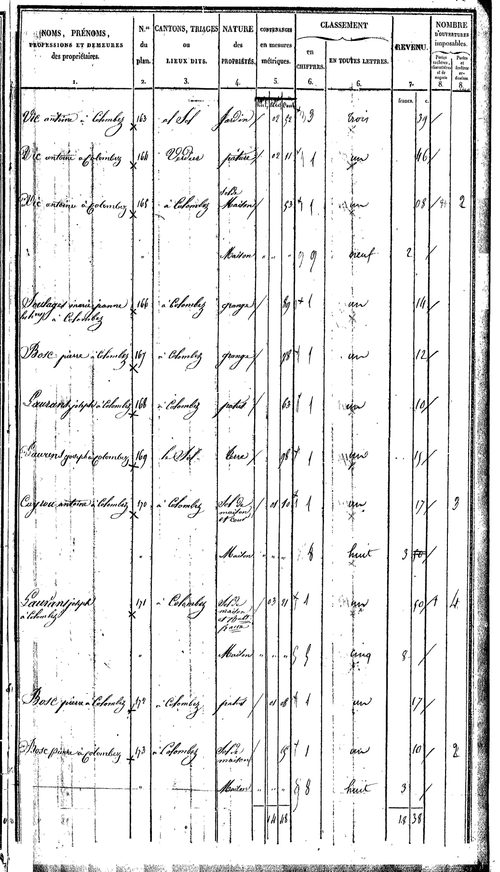 NOMS, PRÉNOMS,
PROFESSIONS ET DEMEURES
des propriétaires.
1.
N.os
du
plan.
2.
CANTONS, TRIAGES
ou
LIEUX DITS.
3.
NATURE
des
PROPRIÉTÉS.
4.
CONTENANCES
en mesures
métriques.
5.
CLASSEMENT
en
CHIFFRES.
6.
EN TOUTES LETTRES.
6.
REVENU.
7.
NOMBRE
D'OUVERTURES
imposables.
8.
8.
francs. c.
Vic antoine à Colombez 163 al Sol Jardin 02 52 3 trois 39
Vic antoine à Colombez 164 Verdier pâture 02 11 1 un 46
Vic antoine à Colombez 165 à Colombez Sol de Maison 53 1 un 08 2
" Maison " " " 9 neuf 2
Soulages marie jeanne à Colombez 166 à Colombez grange 89 1 un 14
Bosc pierre à Colombez 167 à Colombez grange 78 1 un 12
Gaurant joseph à Colombez 168 à Colombez patus 63 1 un 10
Gaurens joseph à Colombez 169 le Sol terre 98 1 un 15
Cayrou antoine à Colombez 170 à Colombez Sol de maison et cour 01 10 1 un 17 3
" Maison " " " 8 huit 3
Gaurant joseph à Colombez 171 à Colombez Sol de maison et 03 21 1 un 50 4
" Maison " " " 5 cinq 8
Bosc pierre à Colombez 172 à Colombez patus 01 08 1 un 17
Bosc pierre à Colombez 173 à Colombez Sol de maison 65 1 un 10 2
" Maison " " " 8 huit 3
14 48 18 38